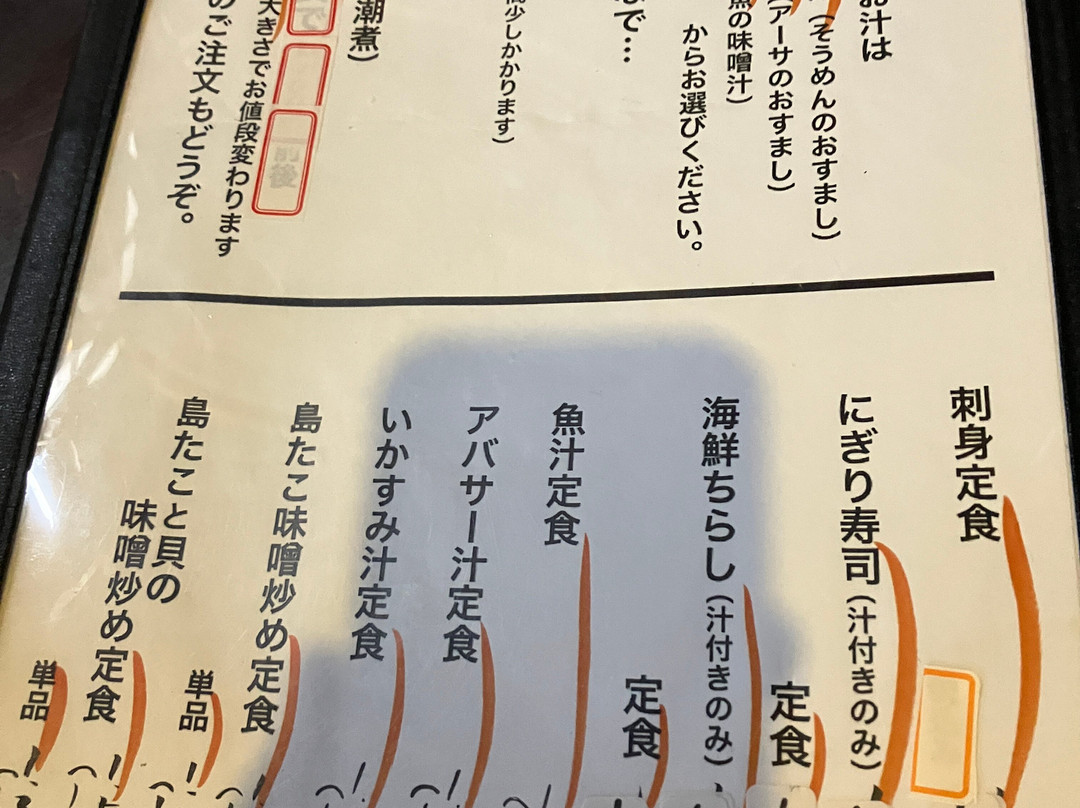 お汁は
(そうめんのおすまし)
(アーサのおすまし)
魚の味噌汁)
からお選びください。
まで…
少しかかります)
潮煮)
大きさでお値段変わります
のご注文もどうぞ。
前後
刺身定食
にぎり寿司(汁付きのみ)
定食
海鮮ちらし(汁付きのみ)
定食
魚汁定食
アバサー汁定食
いかすみ汁定食
島たこ味噌炒め定食
単品
島たこと貝の
味噌炒め定食
単品